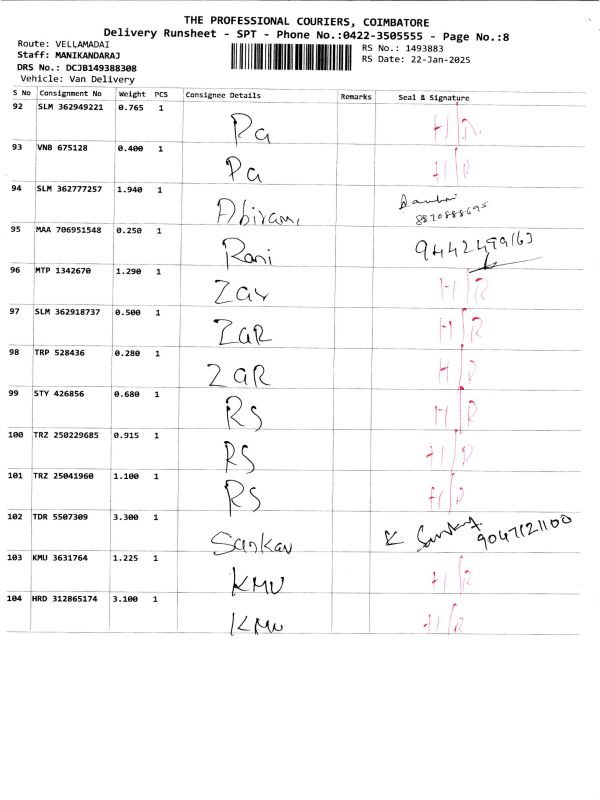 THE PROFESSIONAL COURIERS, COIMBATORE
Delivery Runsheet - SPT - Phone No.:0422-3505555 - Page No.:8
Route: VELLAMADAI
Staff: MANIKANDARAJ
DRS No.: DCJB149388308
Vehicle: Van Delivery
RS No.: 1493883
RS Date: 22-Jan-2025
S No Consignment No Weight PCS Consignee Details Remarks Seal & Signature
92 SLM 362949221 0.765 1 Pa H/R
93 VNB 675128 0.400 1 Pa H/R
94 SLM 362777257 1.940 1 Abirami
8870888695
95 MAA 706951548 0.250 1 Rani 9442499163
96 MTP 1342670 1.290 1 Zar H/R
97 SLM 362918737 0.500 1 ZaR H/R
98 TRP 528436 0.280 1 ZaR H/R
99 STY 426856 0.680 1 RS H/R
100 TRZ 250229685 0.915 1 RS H/R
101 TRZ 25041960 1.100 1 RS H/R
102 TDR 5507309 3.300 1 Sankar K 9047121100
103 KMU 3631764 1.225 1 KMU H/R
104 HRD 312865174 3.100 1 KMU H/R